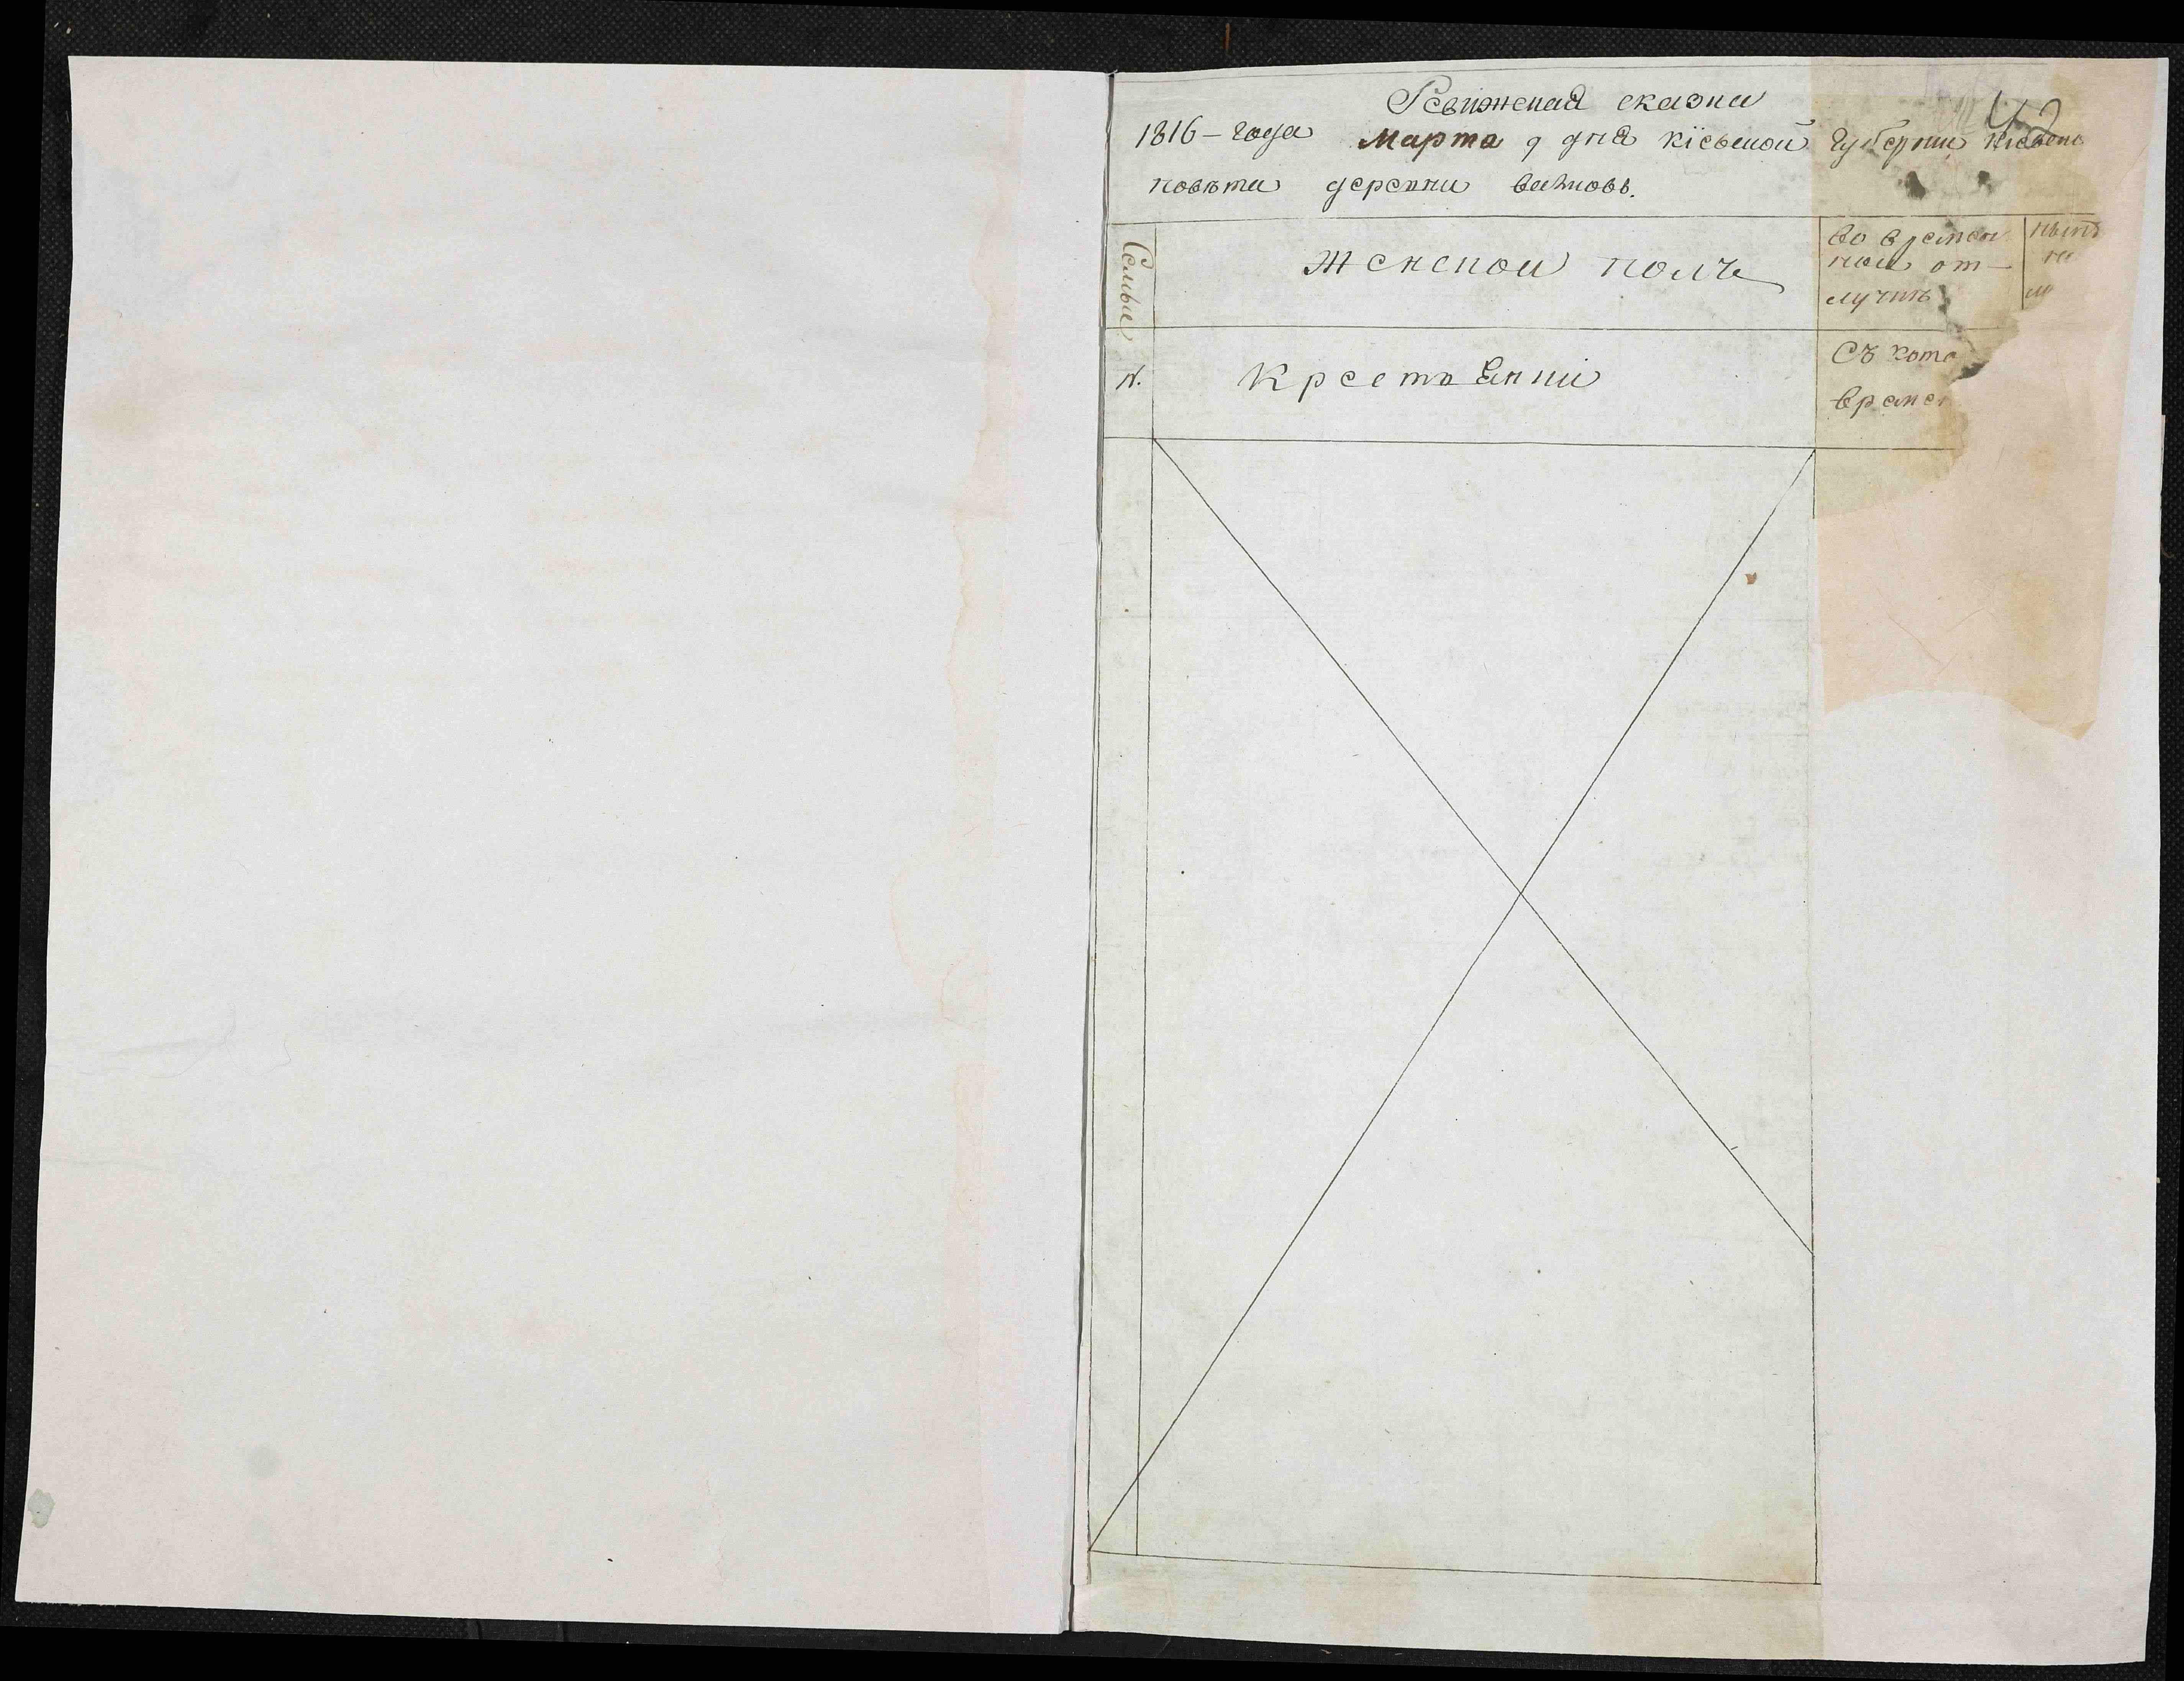 42
Ревижская сказка
1816 – года Марта 9 дня кіевской Губернии кіевско
повѣта деревни
Семьи
женской полъ
во времен
ной от–
лучкѣ
нынѣ
N.
Крестьянии
Съ кото
времен